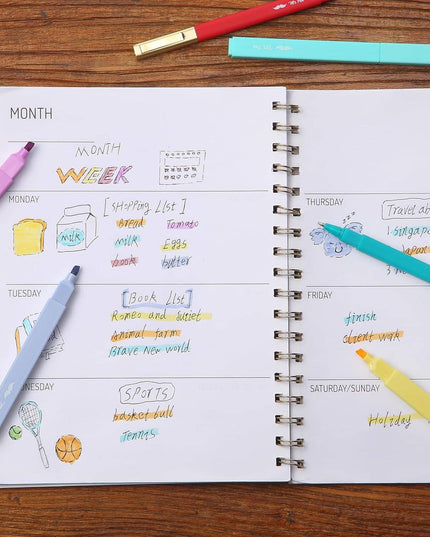 MONTH
MONTH
WEEK
MONDAY
[SHOPPING LIST]
Bread Tomato
Milk Eggs
book butter
MILK
TUESDAY
[Book LIST]
Romeo and
Animal farm
Brave New world
SPORTS
basket ball
Tennis
THURSDAY
zzz
Travel
1.
FRIDAY
finish
client work
SATURDAY/SUNDAY
Holiday